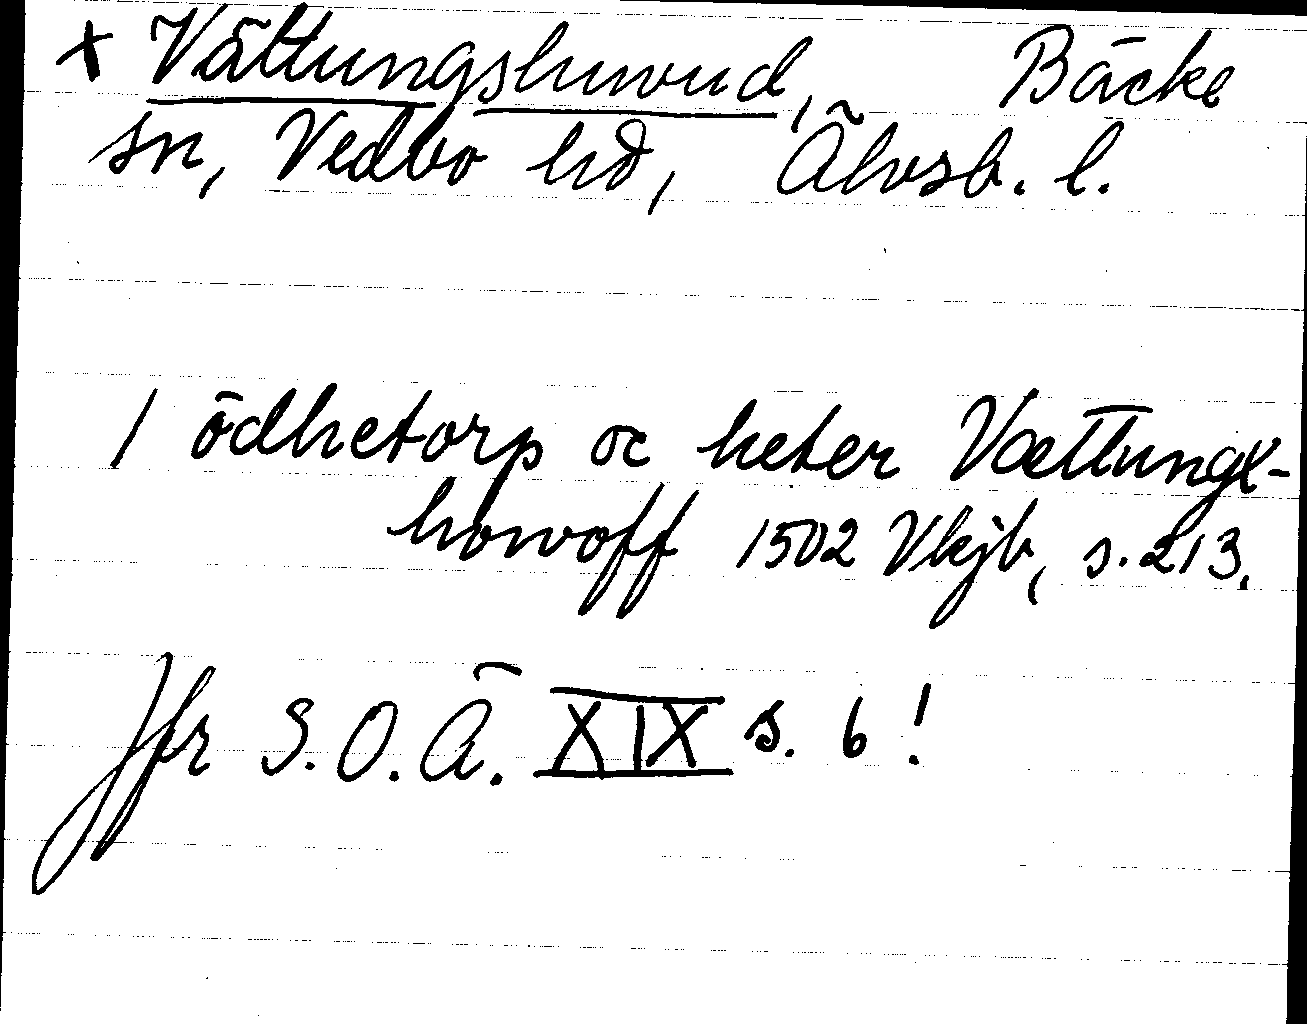 + Vättungshuvud, Bäcke
sn, Vedbo hd, Älvsb. l.
1 ödhetorp oc heter Vættungx-
howoff 1502 Vkjb, s. 213.
Jfr S.O.Ä. XIX s. 6!